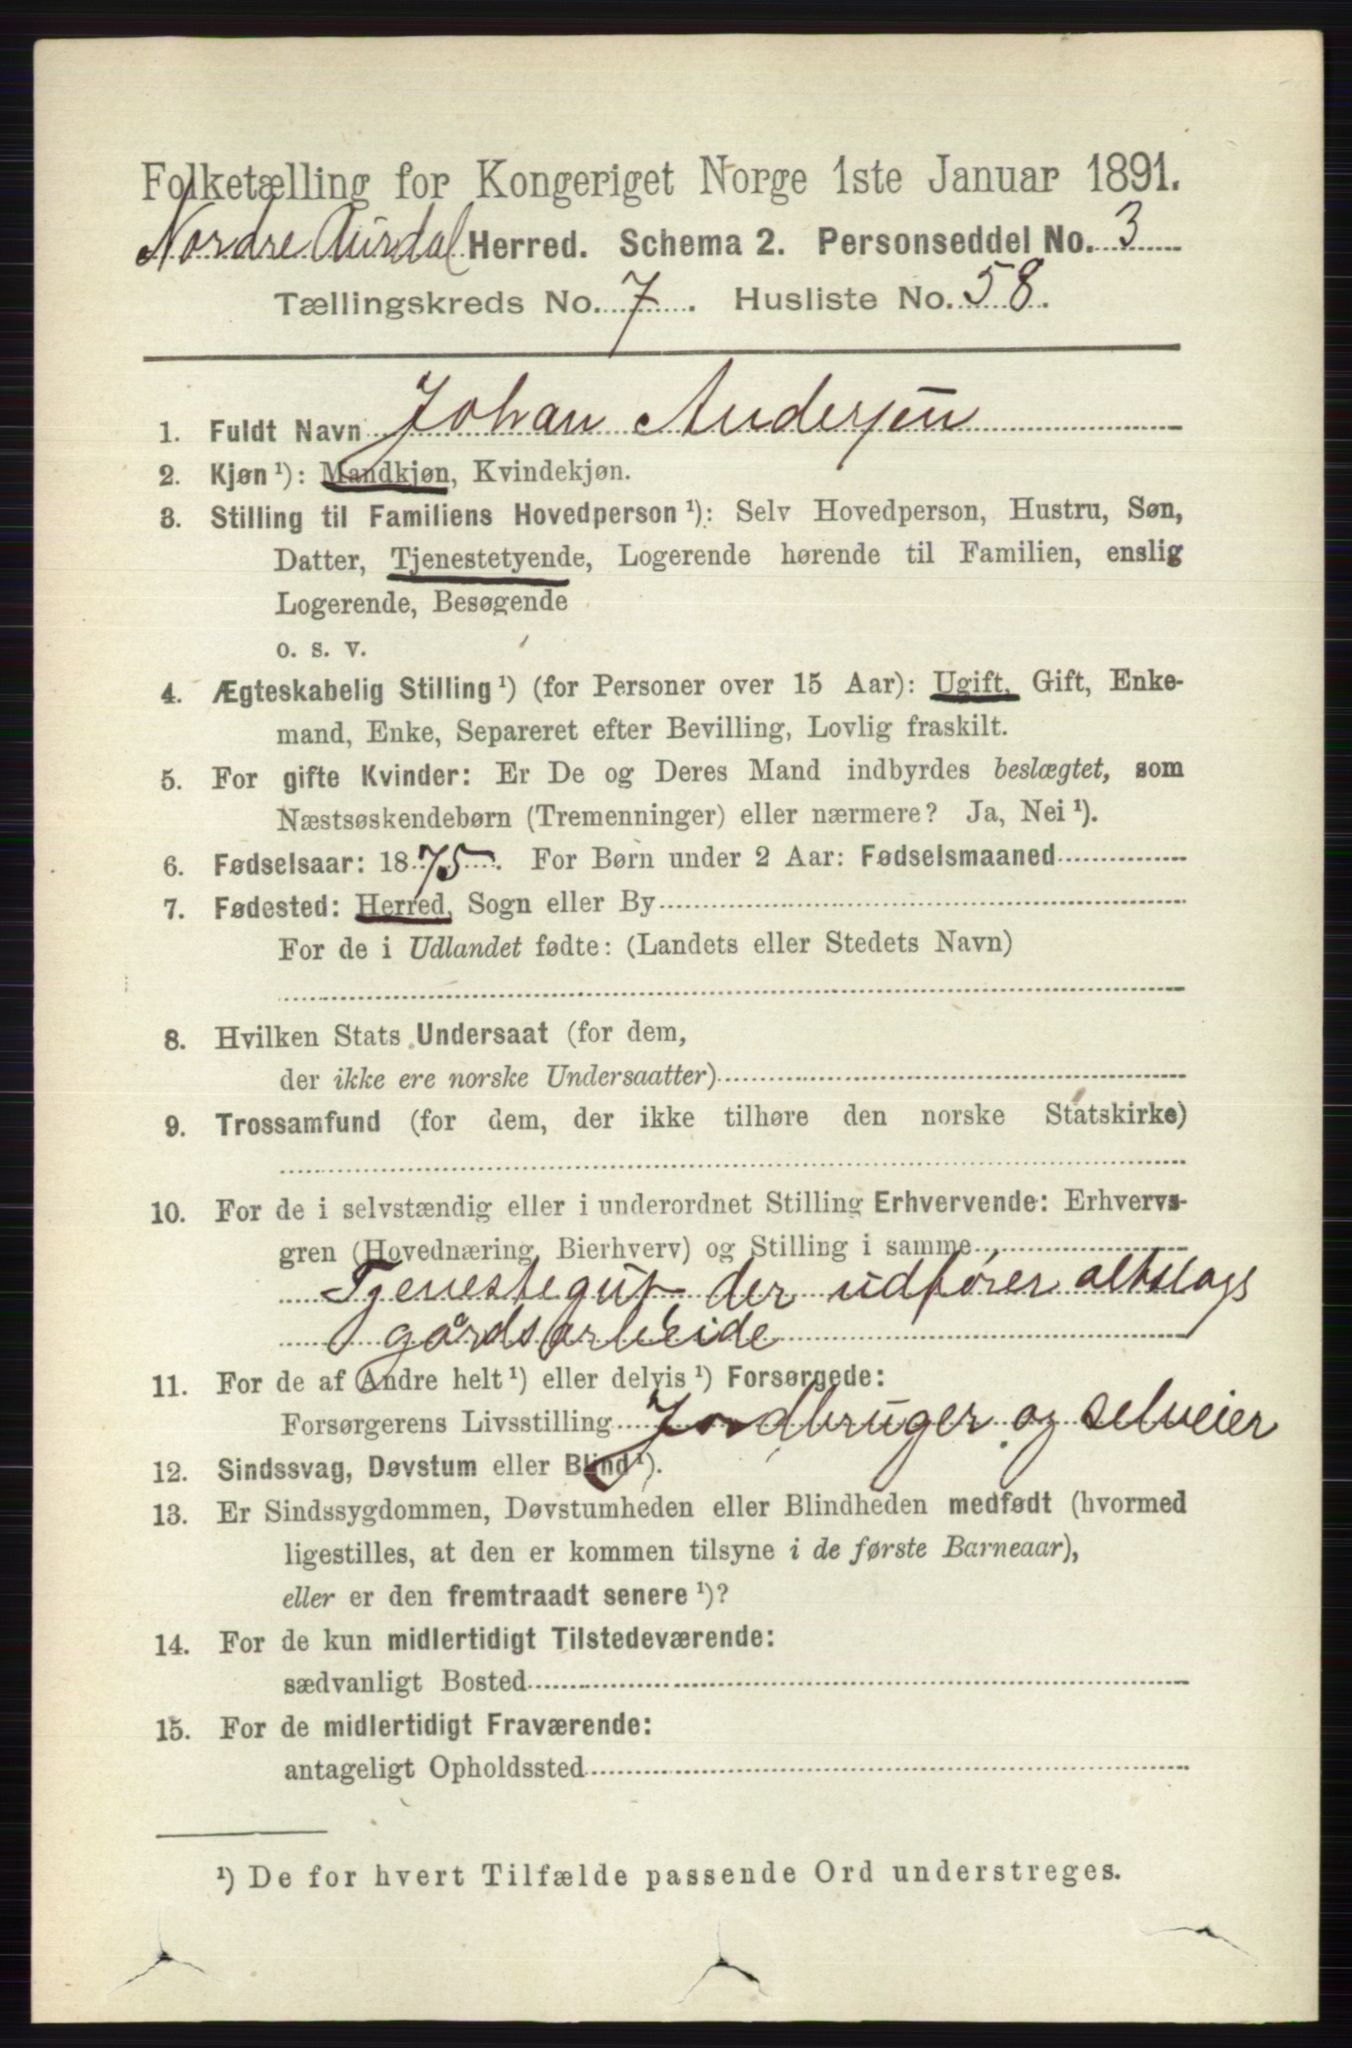 Folketælling for Kongeriget Norge 1ste Januar 1891.
Nordre Aurdal Herred. Schema 2. Personseddel No. 3
Tællingskreds No. 7. Husliste No. 58.
1. Fuldt Navn Johan Andersen
2. Kjøn ¹): Mandkjøn, Kvindekjøn.
3. Stilling til Familiens Hovedperson ¹): Selv Hovedperson, Hustru, Søn,
Datter, Tjenestetyende, Logerende hørende til Familien, enslig
Logerende, Besøgende
o. s. v.
4. Ægteskabelig Stilling ¹) (for Personer over 15 Aar): Ugift, Gift, Enke-
mand, Enke, Separeret efter Bevilling, Lovlig fraskilt.
5. For gifte Kvinder: Er De og Deres Mand indbyrdes beslægtet, som
Næstsøskendebørn (Tremenninger) eller nærmere? Ja, Nei ¹).
6. Fødselsaar: 1875. For Børn under 2 Aar: Fødselsmaaned
7. Fødested: Herred, Sogn eller By
For de i Udlandet fødte: (Landets eller Stedets Navn)
8. Hvilken Stats Undersaat (for dem,
der ikke ere norske Undersaatter)
9. Trossamfund (for dem, der ikke tilhøre den norske Statskirke)
10. For de i selvstændig eller i underordnet Stilling Erhvervende: Erhvervs-
gren (Hovednæring, Bierhverv) og Stilling i samme
Tjenestegut der udfører altslags
gårdsarbeide
11. For de af Andre helt ¹) eller delvis ¹) Forsørgede:
Forsørgerens Livsstilling Jordbruger og selveier
12. Sindssvag, Døvstum eller Blind ¹).
13. Er Sindssygdommen, Døvstumheden eller Blindheden medfødt (hvormed
ligestilles, at den er kommen tilsyne i de første Barneaar),
eller er den fremtraadt senere ¹)?
14. For de kun midlertidigt Tilstedeværende:
sædvanligt Bosted
15. For de midlertidigt Fraværende:
antageligt Opholdssted
¹) De for hvert Tilfælde passende Ord understreges.